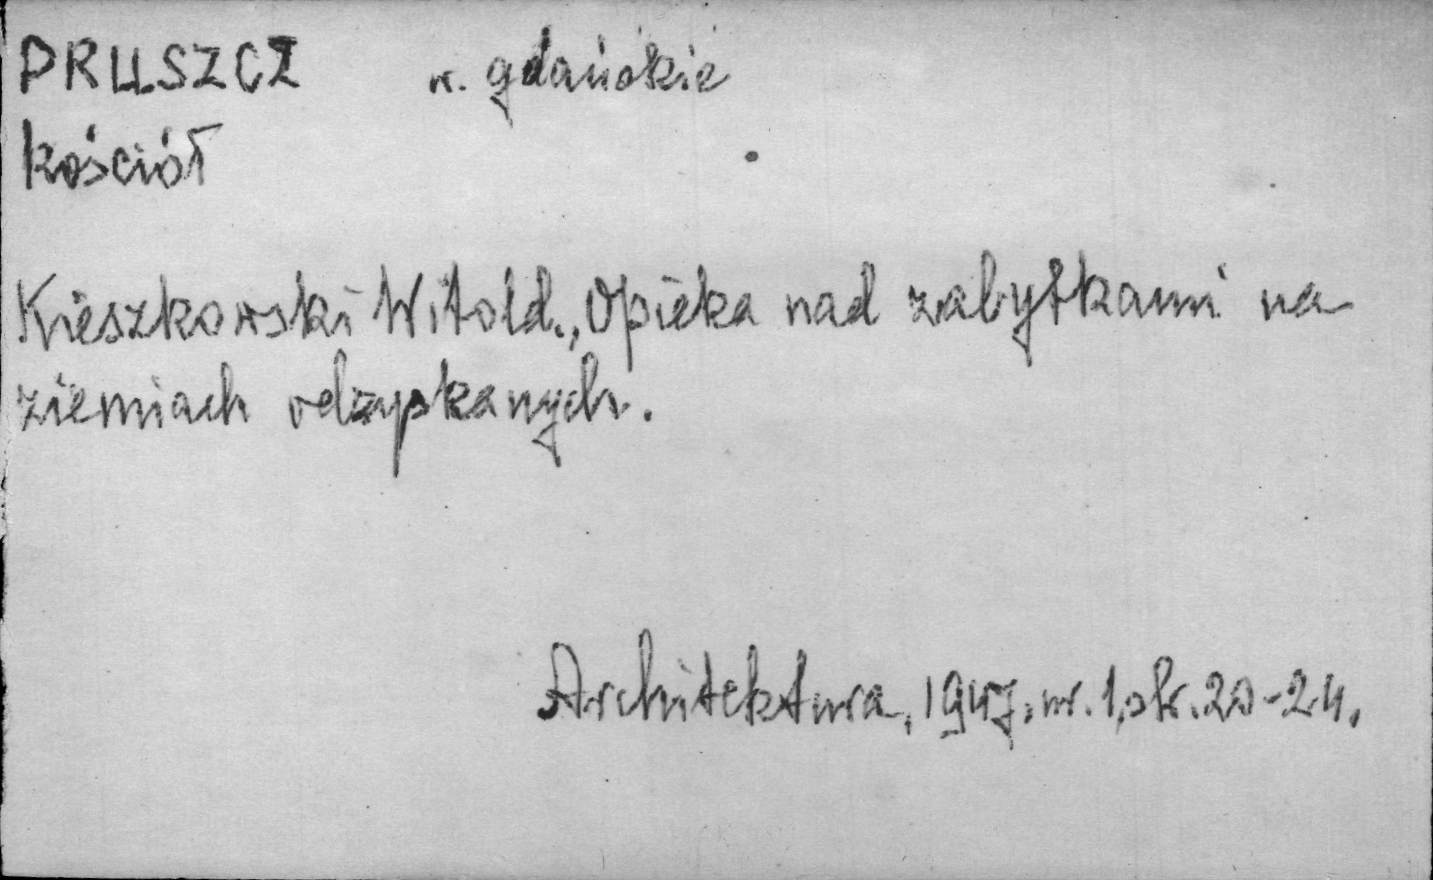 PRUSZCZ w. gdańskie
kościół
Kieszkowski Witold., Opieka nad zabytkami na
ziemiach odzyskanych.
Architektura, 1947, nr. 1, str. 20-24.